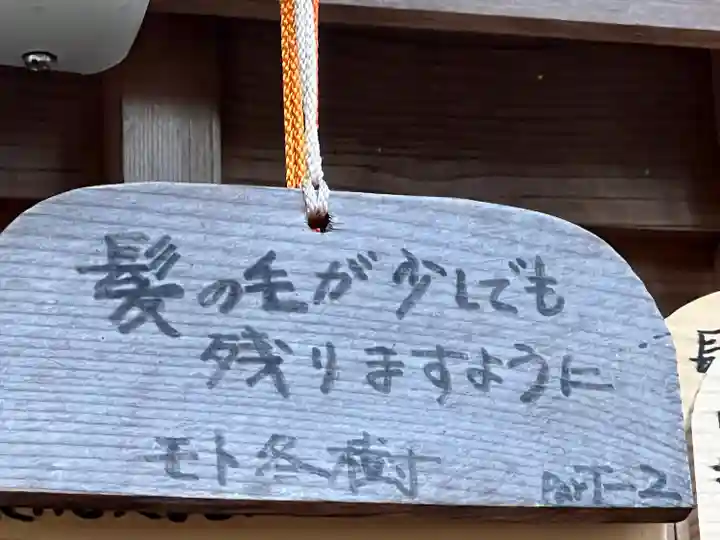 髪の毛が少しでも
残りますように
モト冬樹 Part-2